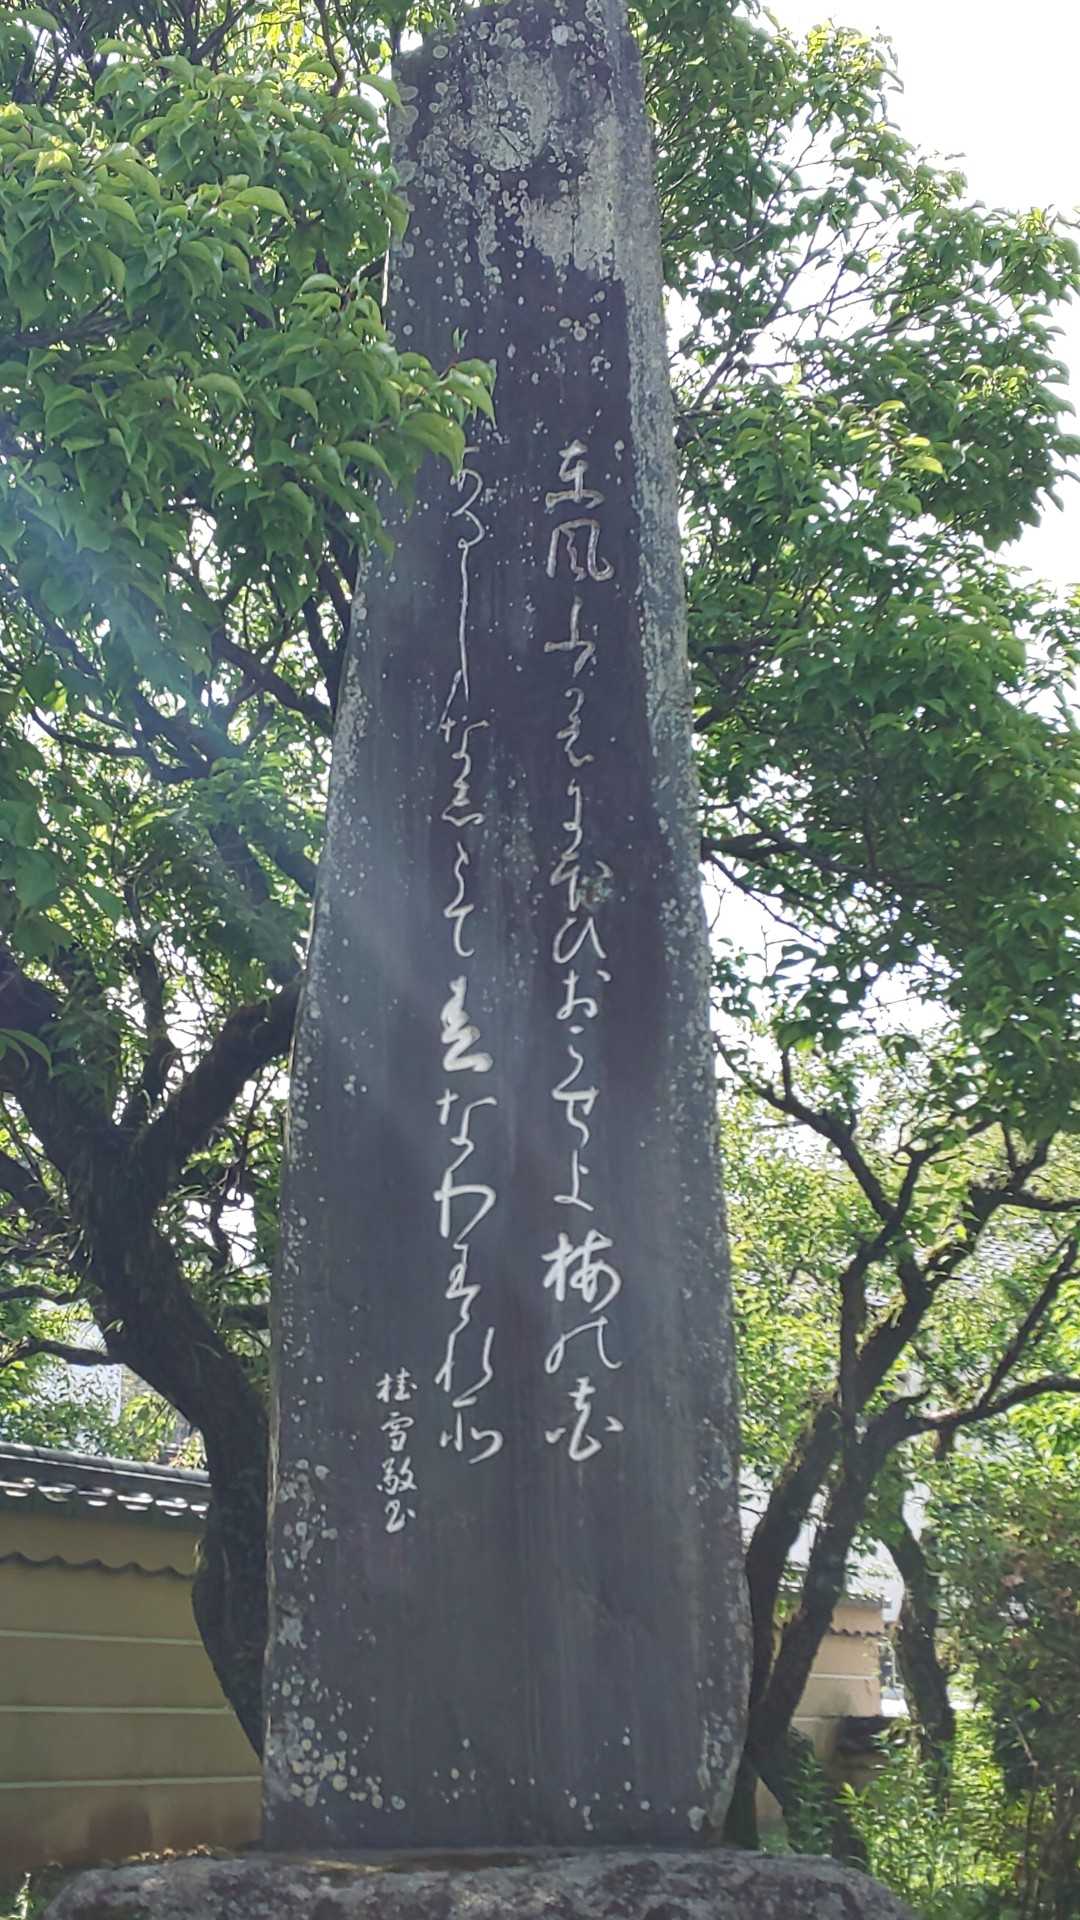 東風ふかはにほひおこせよ梅の花
あるしなしとて春なわすれそ
桂雪敬書